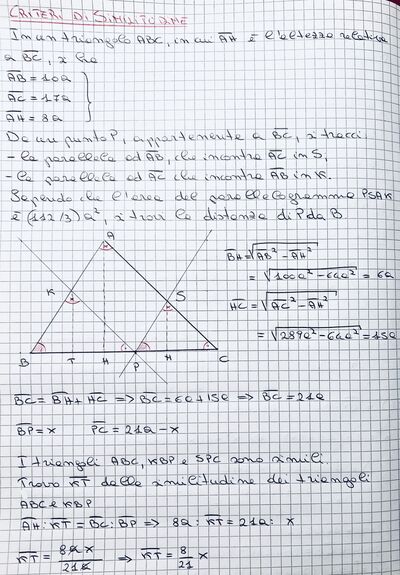 CRITERI DI SIMILITUDINE
In un triangolo ABC, in cui AH è l'altezza relativa
a BC, si ha
AB = 10a
AC = 17a
AH = 8a
Da un punto P, appartenente a BC, si tracci:
- la parallela ad AB, che incontra AC in S,
- la parallela ad AC che incontra AB in K.
Sapendo che l'area del parallelogramma PSAK
è (112/3) a², si trovi la distanza di P da B
A
K
S
B
T
H
P
H
C
BH = √AB² - AH²
= √100a² - 64a² = 6a
HC = √AC² - AH²
= √289a² - 64a² = 15a
BC = BH + HC => BC = 6a + 15a => BC = 21a
BP = x PC = 21a - x
I triangoli ABC, KBP e SPC sono simili.
Trovo KT dalla similitudine dei triangoli
ABC e KBP
AH : KT = BC : BP => 8a : KT = 21a : x
KT = 8ax/21a => KT = 8/21 x